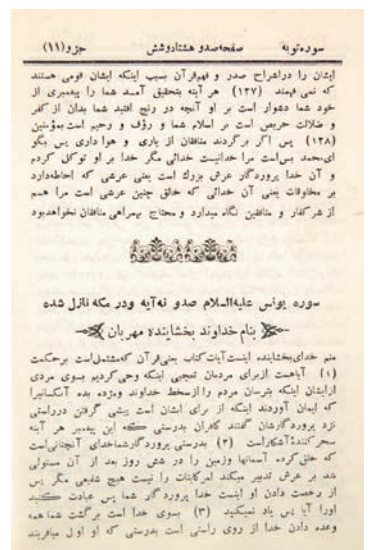 سوره توبه صفحه صدو هشتادوشش جزو (۱۱)
ایشان را دراشراح صدر و فهم قرآن بسبب اینکه ایشان قومی هستند
که نمی فهمند (۱۲۷) هر آینه بتحقیق آمد شما را پیغمبری از
خود شما دشوار است بر او آنچه در رنج افتید شما بدان از کفر
و ضلالت حریص است بر اسلام شما و رؤف و رحیم است بمؤمنین
(۱۲۸) پس اگر برگردند منافقان از یاری و هواداری پس بگو
ای محمد بس است مرا خدا نیست خدائی مگر خدا بر او توکل کردم
و آن خدا پروردگار عرش بزرك است یعنی عرشی که احاطه دارد
بر مخلوقات یعنی آن خدائی که خالق چنین عرشی است مرا هم
از شر کفار و منافقین نگاه میدارد و محتاج بهمراهی منافقان نخواهد بود
سوره یونس علیه السلام صدو نه آیه و در مکه نازل شده
بنام خداوند بخشاینده مهربان
منم خدای بخشاینده اینست آیات کتاب یعنی قرآن که مشتمل است بر حکمت
(۱) آیا هست از برای مردمان تعجبی اینکه وحی کردیم بسوی مردی
از ایشان اینکه بترسان مردم را از سخط خداوند و مژده بده آنکسانیرا
که ایمان آوردند اینکه از برای ایشان است پیشی گرفتن در راستی
نزد پروردگارشان گفتند کافران بدرستی که این پیغمبر هر آینه
سحر کنندهٔ آشکار است (۲) بدرستی پروردگار شما خدای آنچنانی است
که خلق کرده آسمانها و زمین را در شش روز بعد از آن مستولی
شد بر عرش تدبیر میکند امر کاینات را نیست هیچ شفیعی مگر پس
از رخصت دادن او اینست خدا پروردگار شما پس عبادت کنید
اورا آیا پس یاد نمیکنید (۳) بسوی خدا است برگشت شما همه
وعده دادن خدا از روی راستی است بدرستی که او اول میآفریند